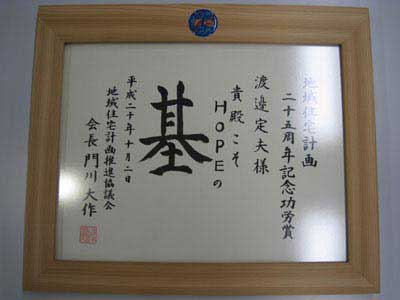 地域住宅計画
二十五周年記念功労賞
渡邉定夫様
貴殿こそ
HOPEの
基
平成二十年十月二日
地域住宅計画推進協議会
会長 門川大作